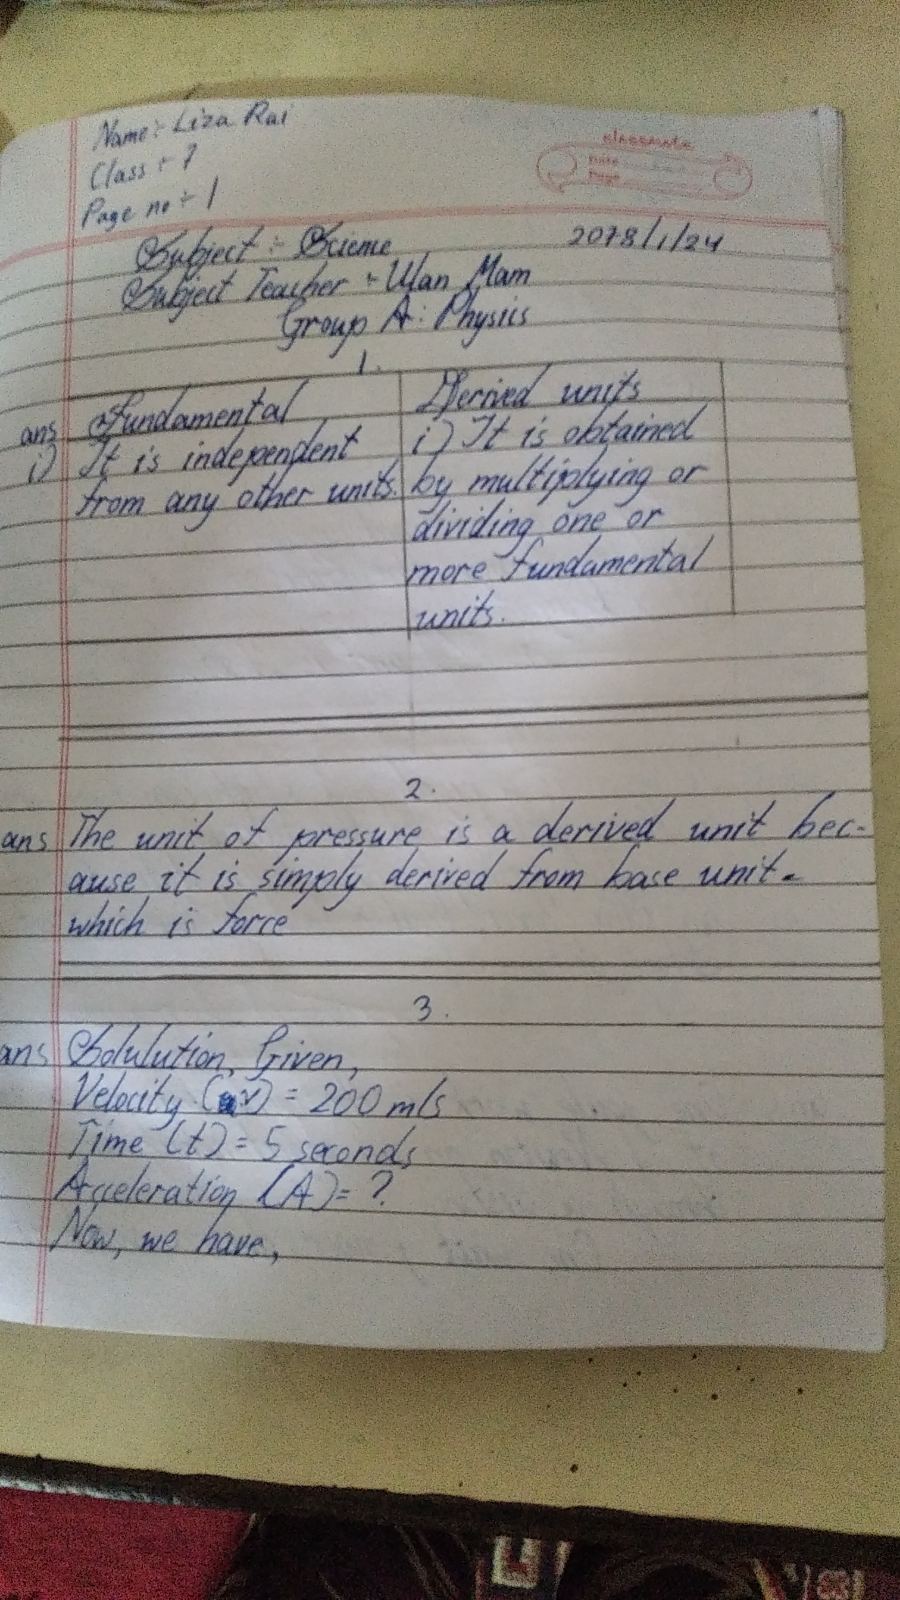 Name:- Liza Rai
Class :- 7
Page no :- 1
classmate
Date
Page
Subject :- Science
2078/1/24
Subject Teacher :- Ulan Mam
Group A: Physics
1.
ans Fundamental
i) It is independent
from any other units.
Derived units
i) It is obtained
by multiplying or
dividing one or
more fundamental
units.
2.
ans The unit of pressure is a derived unit bec-
ause it is simply derived from base unit.
which is force
3.
ans Solulution, Given,
Velocity (v) = 200 m/s
Time (t) = 5 seconds
Acceleration (A) = ?
Now, we have,